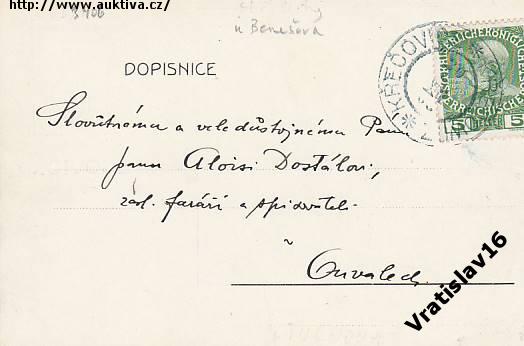 http://www.auktiva.cz/
3406
u Benešova
DOPISNICE
KŘEČOVI
5 HELLER 5
Slovutnému a veledůstojnému Panu
panu Aloisi Dostálovi,
zásl. faráři a spisovateli
v
Ouvalech.
Vratislav16